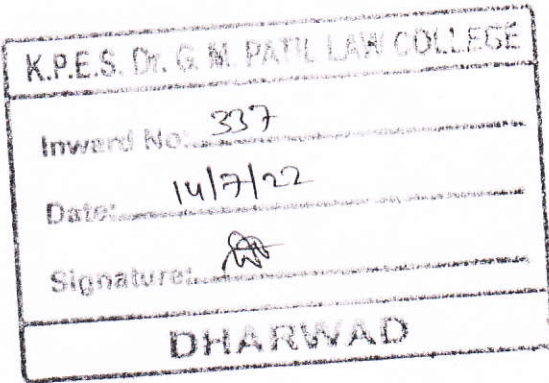 K.P.E.S. Dr. G. M. PATIL LAW COLLEGE
Inward No: 337
Date: 14/7/22
Signature:
DHARWAD